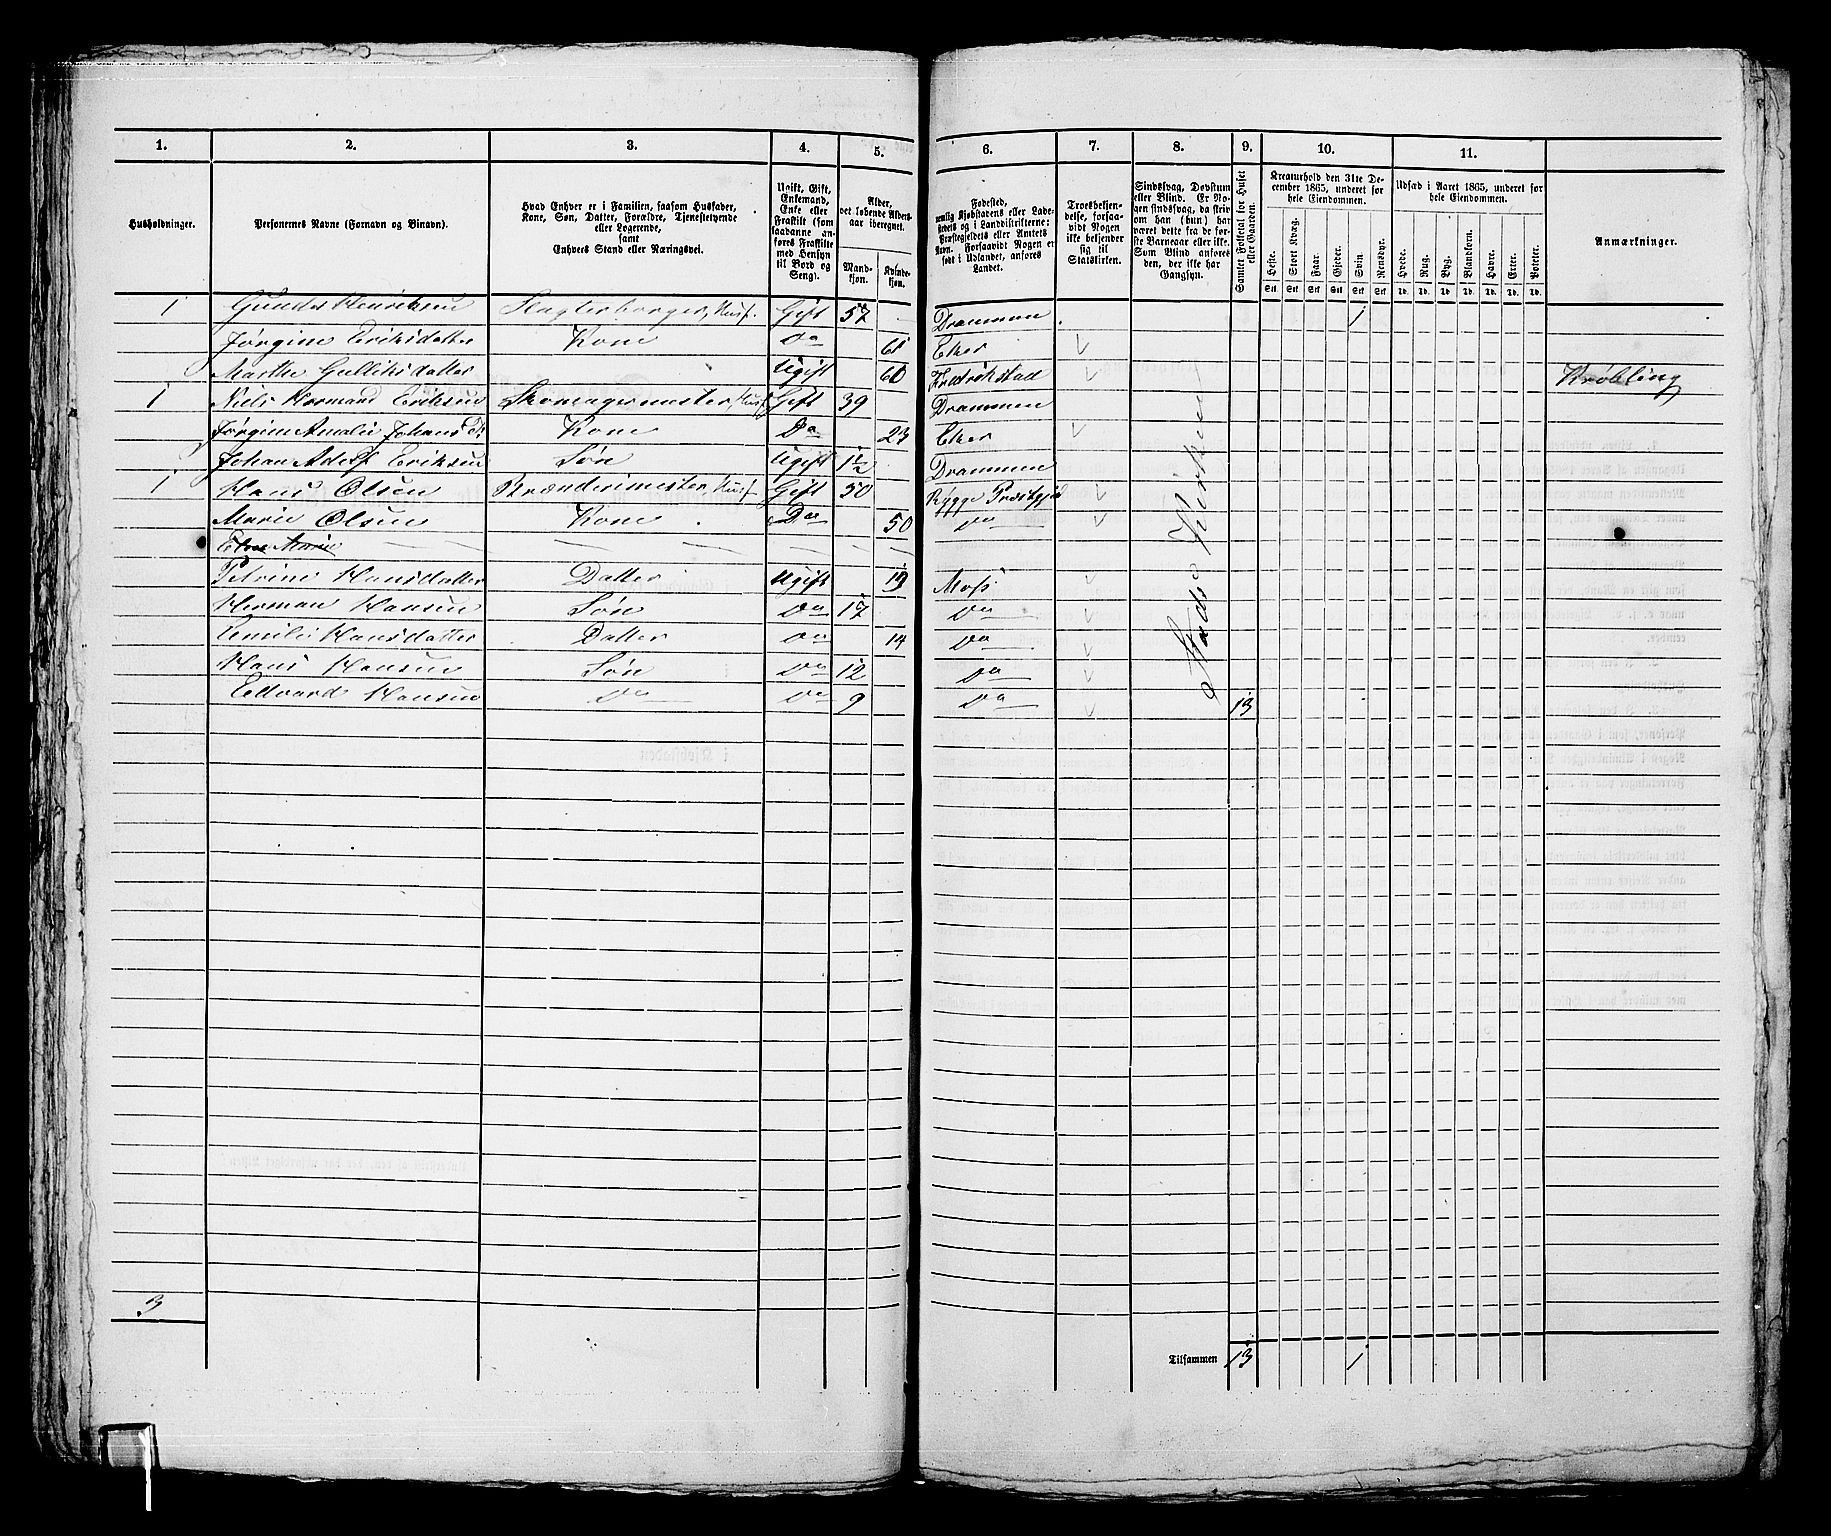 1. 2. 3. 4. 5. 6. 7. 8. 9. 10. 11.
Husholdninger.
Personernes Navne (Fornavn og Binavn).
Hvad Enhver er i Familien, saasom Husfader,
Kone, Søn, Datter, Forældre, Tjenestetyende
eller Logerende,
samt
Enhvers Stand eller Næringsvei.
Ugift, Gift,
Enkemand,
Enke eller
Fraskilt (som
saadanne an-
føres Fraskilte
med Hensyn
til Bord og
Seng).
Alder,
det løbende Alders-
aar iberegnet.
Mand-
kjøn.
Kvinde-
kjøn.
Fødested,
nemlig Kjøbstadens eller Lade-
stedets og i Landdistrikterne:
Præstegjeldets eller Amtets
Navn. Forsaavidt Nogen er
født i Udlandet, anføres
Landet.
Troesbekjen-
delse, forsaa-
vidt Nogen
ikke bekjender
sig til
Statskirken.
Sindssvag, Døvstum
eller Blind. Er No-
gen sindssvag, da skriv
om han (hun) har
været dette fra de før-
ste Barneaar eller ikke.
Som Blind anføres
den, der ikke har
Gangsyn.
Samlet Folketal for Huset
eller Gaarden.
Kreaturhold den 31te De-
cember 1865, underet før
hele Eiendommen.
Heste. Stort Kvæg. Faar. Gjeder. Svin. Rensdyr.
Stk. Stk. Stk. Stk. Stk. Stk.
Udsæd i Aaret 1865, underet før
hele Eiendommen.
Hvede. Rug. Byg. Blandkorn. Havre. Erter. Poteter.
Td. Td. Td. Td. Td. Td. Td.
Anmærkninger.
1 Gunder Henriksen Slagterborger, Husf. Gift 57 Drammen 1
Jørgine Eriksdatter Kone Do 61 Eker
Marthe Gulliksdatter Ugift 60 Fredrikstad
1 Niels Hermand Eriksen Skomagermester, Husf Gift 39 Drammen
Jørgine Amalie Johans D. Kone Do 23 Eker
Johan Adolf Eriksen Søn Ugift 1½ Drammen
1 Hans Olsen Brænderimester, Husf Gift 50 Rygge Prestegjeld
Marie Olsen Kone Do 50 Do
Petrine Hansdatter Datter Ugift 19 Moss
Herman Hansen Søn Do 17 Do
Emilie Hansdatter Datter Do 14 Do
Hans Hansen Søn Do 12 Do
Edvard Hansen Do Do 9 Do 13
Stads Kirken
3
Tilsammen 13 1